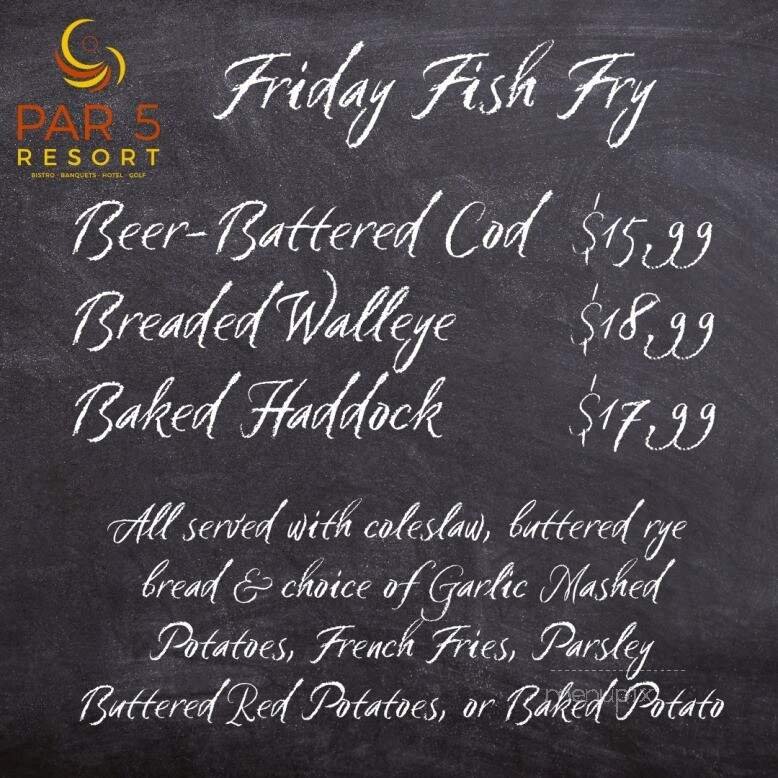 PAR 5
RESORT
BISTRO · BANQUETS · HOTEL · GOLF
Friday Fish Fry
Beer-Battered Cod $15.99
Breaded Walleye $18.99
Baked Haddock $17.99
All served with coleslaw, buttered rye
bread & choice of Garlic Mashed
Potatoes, French Fries, Parsley
Buttered Red Potatoes, or Baked Potato
menupix